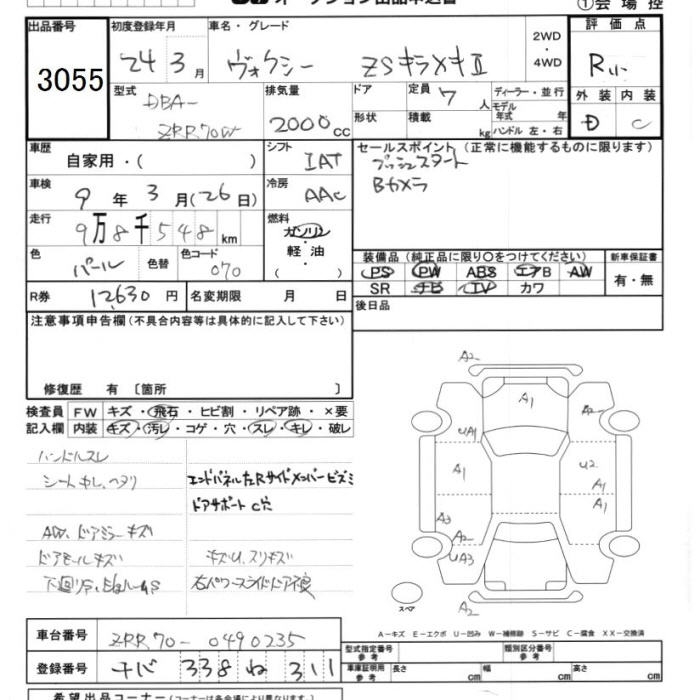 オークション出品申込書
①会場控
出品番号 初度登録年月 車名・グレード 2WD・4WD 評価点
3055 24年3月 ヴォクシー ZSキラメキⅡ R
型式 排気量 ドア 定員 7人 ディーラー・並行 外装 内装
DBA-ZRR70W 2000cc 形状 積載 kg モデル年式 年 ハンドル 左・右 D C
車歴 シフト セールスポイント(正常に機能するものに限ります)
自家用・( ) IAT プッシュスタート
車検 9年3月(26日) 冷房 AAC Bカメラ
走行 9万8千548km 燃料 ガソリン・軽油・( )
色 パール 色替 色コード 070
装備品(純正品に限り〇をつけてください) 新車保証書
PS PW ABS エアB AW 有・無
SR ナビ TV カワ
R券 12,630円 名変期限 月 日 後日品
注意事項申告欄(不具合内容等は具体的に記入して下さい)
修復歴 有 〔箇所 〕
検査員 FW キズ・飛石・ヒビ割・リペア跡・×要
記入欄 内装 キズ・汚レ・コゲ・穴・スレ・キレ・破レ
ハンドルスレ
シートキレ、ヘタリ エンドパネル左Rサイドメンバービズミ
ドアサポートC穴
AW、ドアミラーキズ
ドアモールキズ キズU、スリキズ
下回りサ、 右パワースライドドア不良
A2
A1
A2
UA1
A1
U2
A1
A1
A3
A2
UA3
A2
スペア
A2
A-キズ E-エクボ U-凹み W-補修跡 S-サビ C-腐食 XX-交換済
車台番号 ZRR70-0490235
登録番号 チバ 338 ね 311
型式指定番号 参考 類別区分番号 参考
車庫証明用 参考 長さ cm 幅 cm 高さ cm
希望出品コーナー(コーナーは各会場により異なります。)